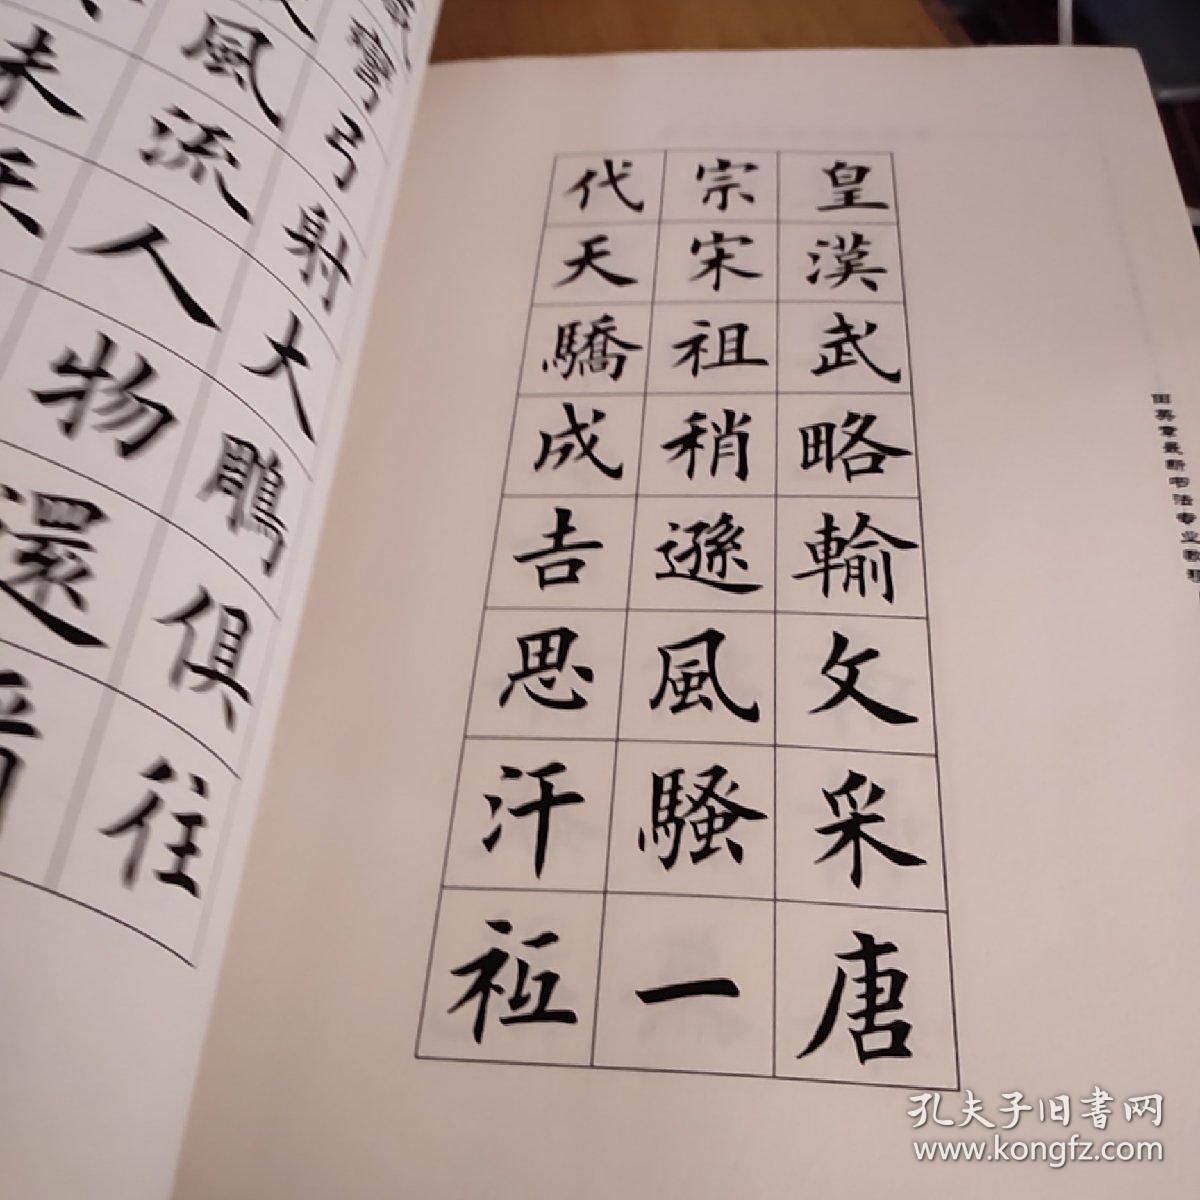 彎弓射大鵰俱往
風流人物還
皇漢武略輸文采唐
宗宋祖稍遜風騷一
代天驕成吉思汗祗
田英章最新书法专业教程
孔夫子旧书网
www.kongfz.com